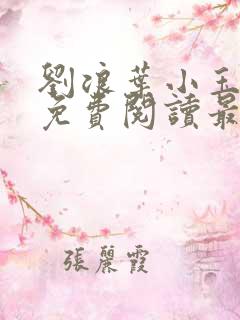 劉浪葉小玉
免費閱讀最
張麗霞